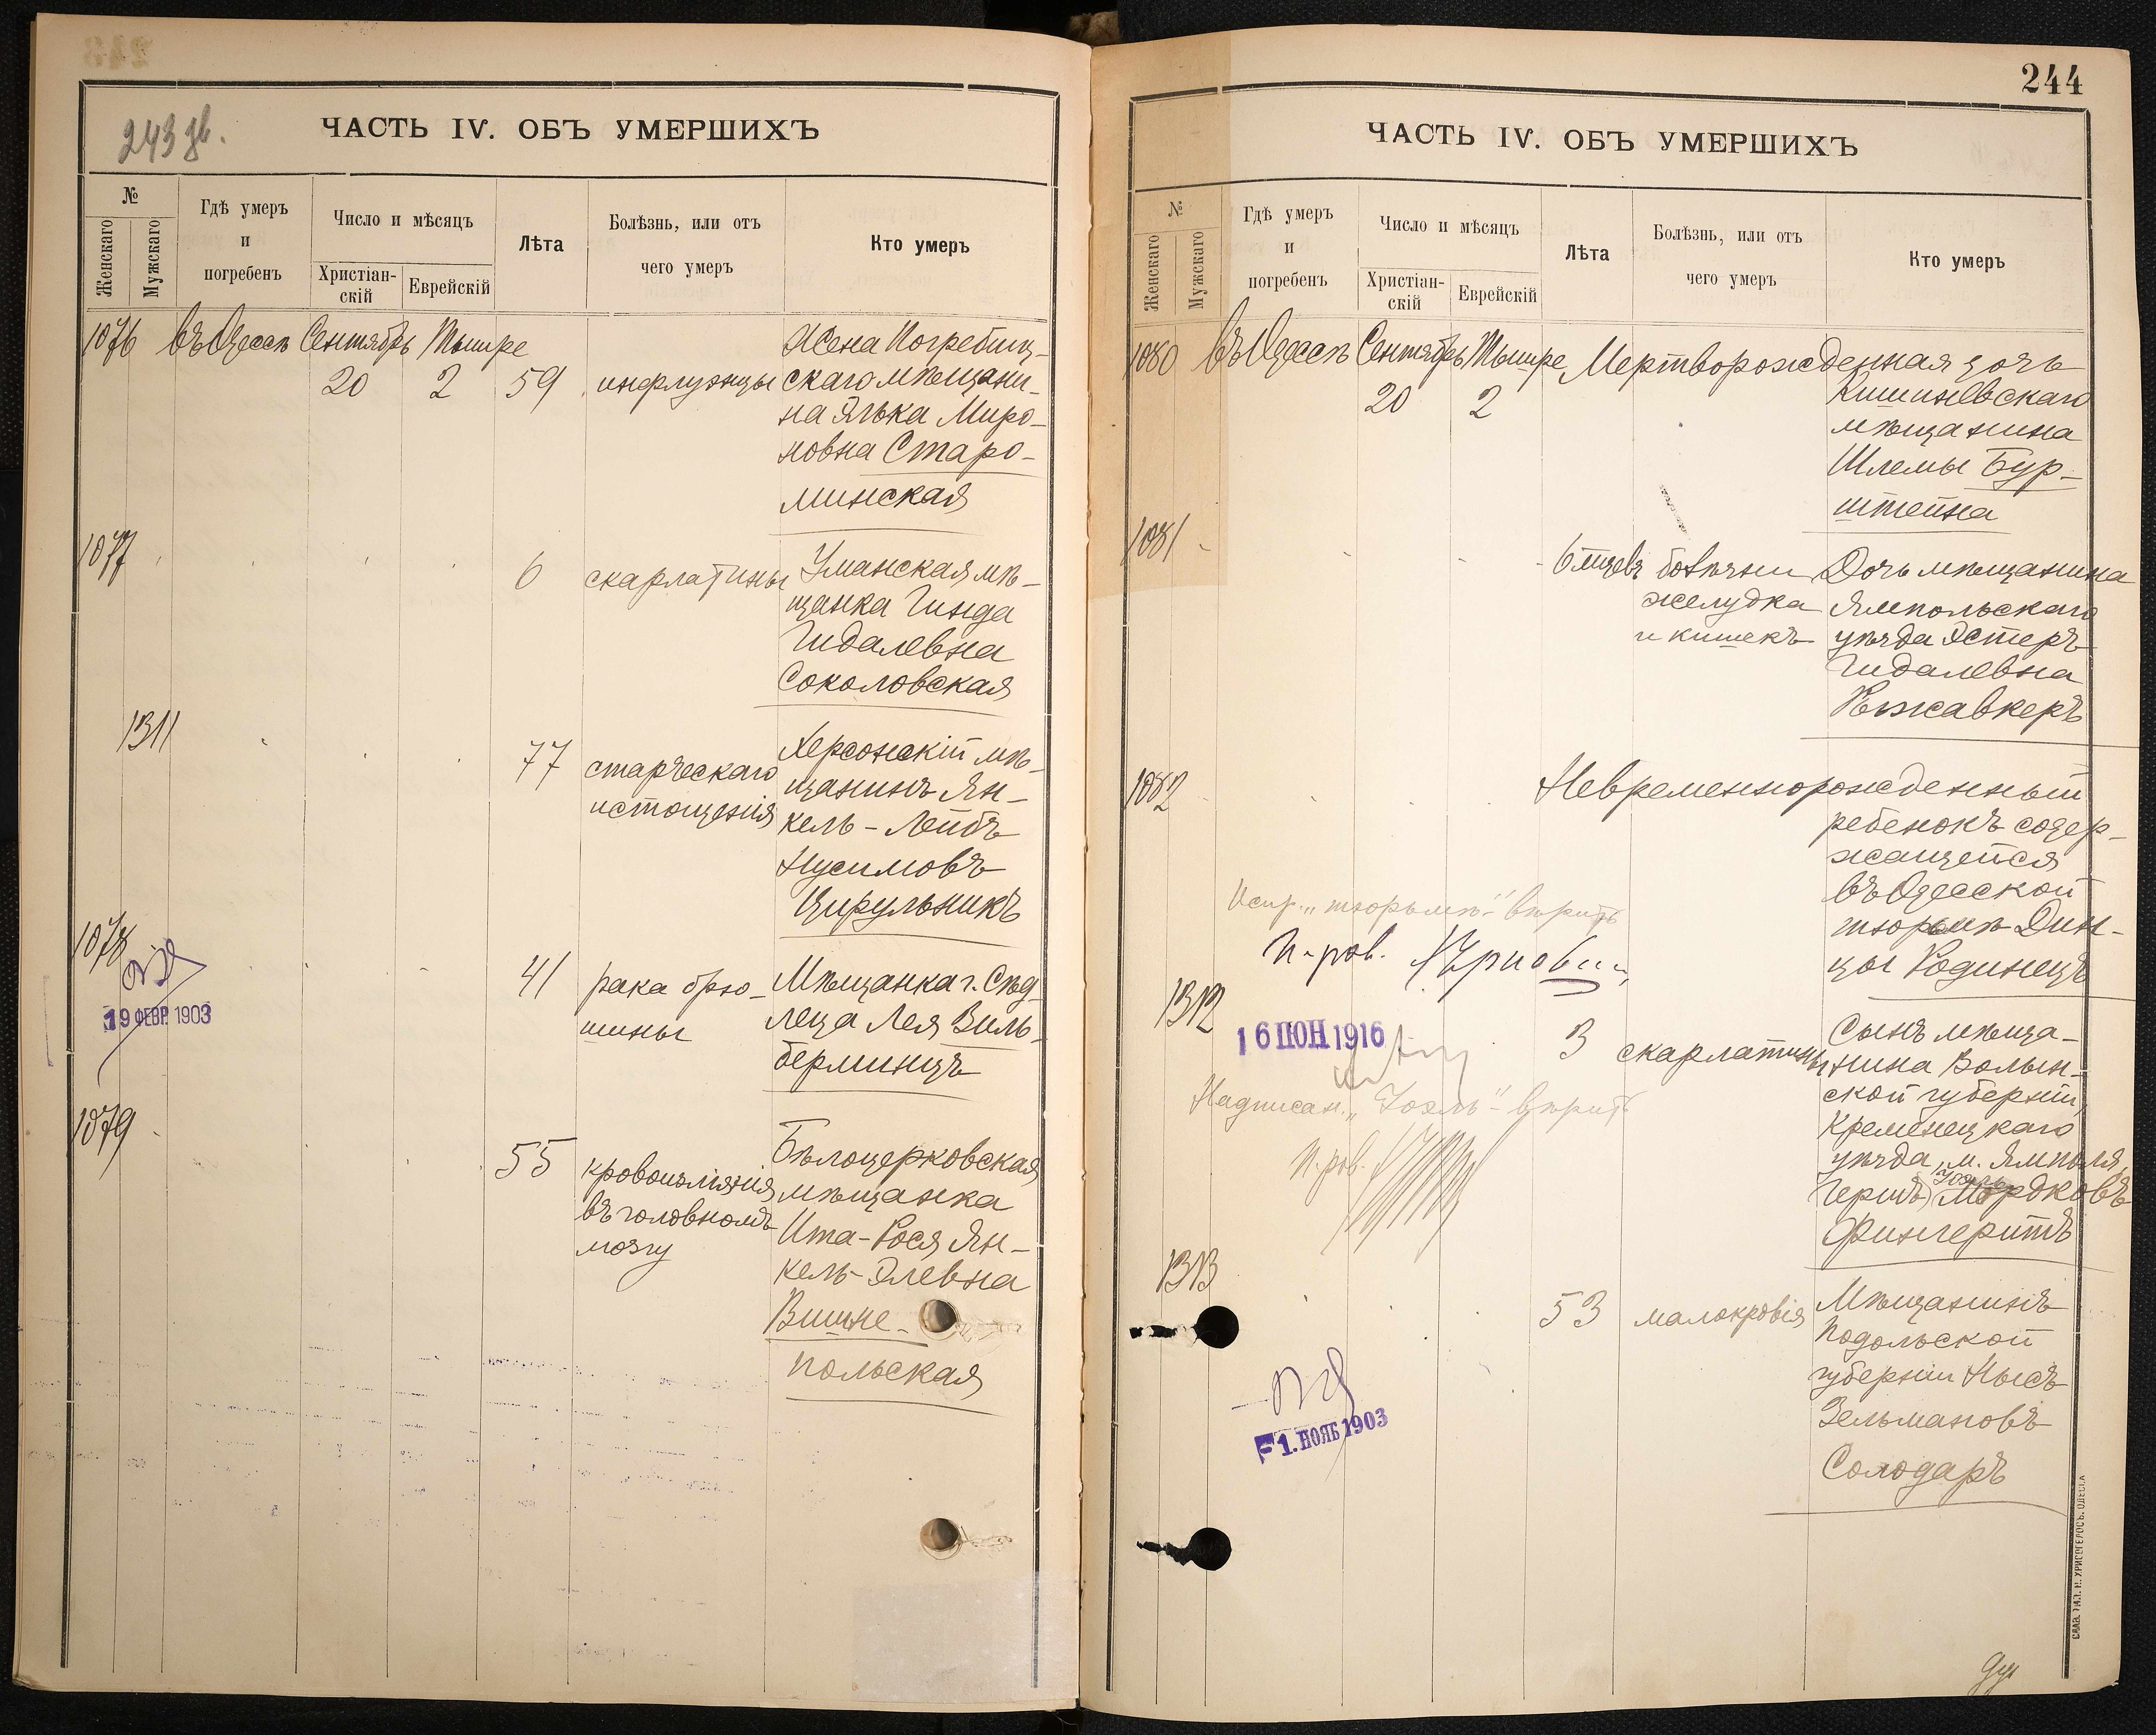 243 зв.
ЧАСТЬ IV. ОБЪ УМЕРШИХЪ
№
Женскаго
Мужскаго
Гдѣ умеръ
и
погребенъ
Число и мѣсяцъ
Христіан-
скій
Еврейскій
Лѣта
Болѣзнь, или отъ
чего умеръ
Кто умеръ
1076 въ Одессѣ Сентябрь Тышре
20 2 59 инфлуэнцы
Жена Погребищ-
скаго мѣщани-
на Элька Миро-
новна Старо-
минская
1077 6 скарлатины
Уманская мѣ-
щанка Гинда
Гидалевна
Соколовская
1311 77 старческаго
истощенія
Херсонскій мѣ-
щанинъ Ян-
кель-Лейбъ
Нусимовъ
Цирульникъ
1078 41 рака брю-
шины
Мѣщанка г. Сѣд-
леца Лея Виль-
берминцъ
19 ФЕВР. 1903
1079 55 кровоизліянія
въ головномъ
мозгу
Бѣлоцерковская
мѣщанка
Ита-Рося Ян-
кель-Элевна
Вишне-
польская
244
ЧАСТЬ IV. ОБЪ УМЕРШИХЪ
№
Женскаго
Мужскаго
Гдѣ умеръ
и
погребенъ
Число и мѣсяцъ
Христіан-
скій
Еврейскій
Лѣта
Болѣзнь, или отъ
чего умеръ
Кто умеръ
1080 въ Одессѣ Сентябрь Тышре Мертворожденная дочь
20 2
Кишиневскаго
мѣщанина
Шлемы Бур-
штейна
1081 6 мѣсцевъ болѣзни
желудка
и кишекъ
Дочь мѣщанина
Ямпольскаго
уѣзда Эстеръ
Гидалевна
Кжавкеръ
1082 Невременнорожденный
ребенокъ содер-
жащейся
въ Одесской
тюрьмѣ Дин-
цы Родинецъ
Испр. „тюрьмѣ" вѣрить
П-рав.
1312 3 скарлатины
Сынъ мѣща-
нина Волын-
ской губерніи,
Кременецкаго
уѣзда, м. Ямполя,
Гершъ Іоэль Мордковъ
Фингеритъ
16 ІЮН 1916
Надписан. „Іоэль" вѣрить
П-рав.
1313 53 малокровія
Мѣщанинъ
Подольской
губерніи Нысъ
Зельмановъ
Солодаръ
1. НОЯБ 1903